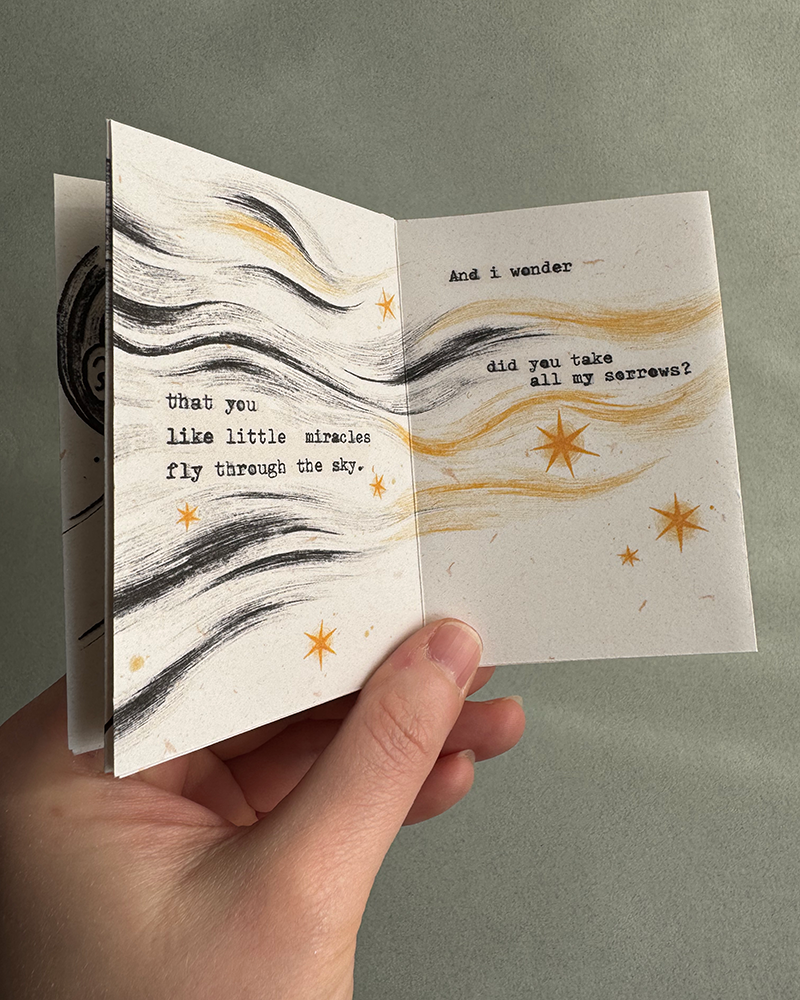 that you
like little miracles
fly through the sky.
And i wonder
did you take
all my sorrows?